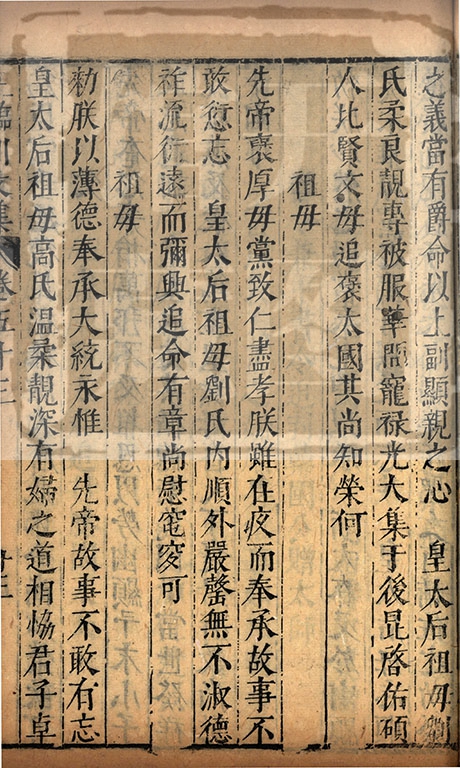 之義當有爵命以上副顯親之心　皇太后祖母劉
氏柔良靚專被服華閥寵祿光大集于後昆啓佑碩
人比賢文母追褒太國其尚知榮何
祖母
先帝褒厚母黨致仁盡孝朕雖在疚而奉承故事不
敢愆忘　皇太后祖母劉氏內順外嚴罄無不淑德
祚流衍遠而彌興追命有章尚慰窀穸可
祖母
勑朕以薄德奉承大統永惟　先帝故事不敢有忘
皇太后祖母高氏溫柔靚深有婦之道相恊君子卓
臨川文集　卷五十三　十三